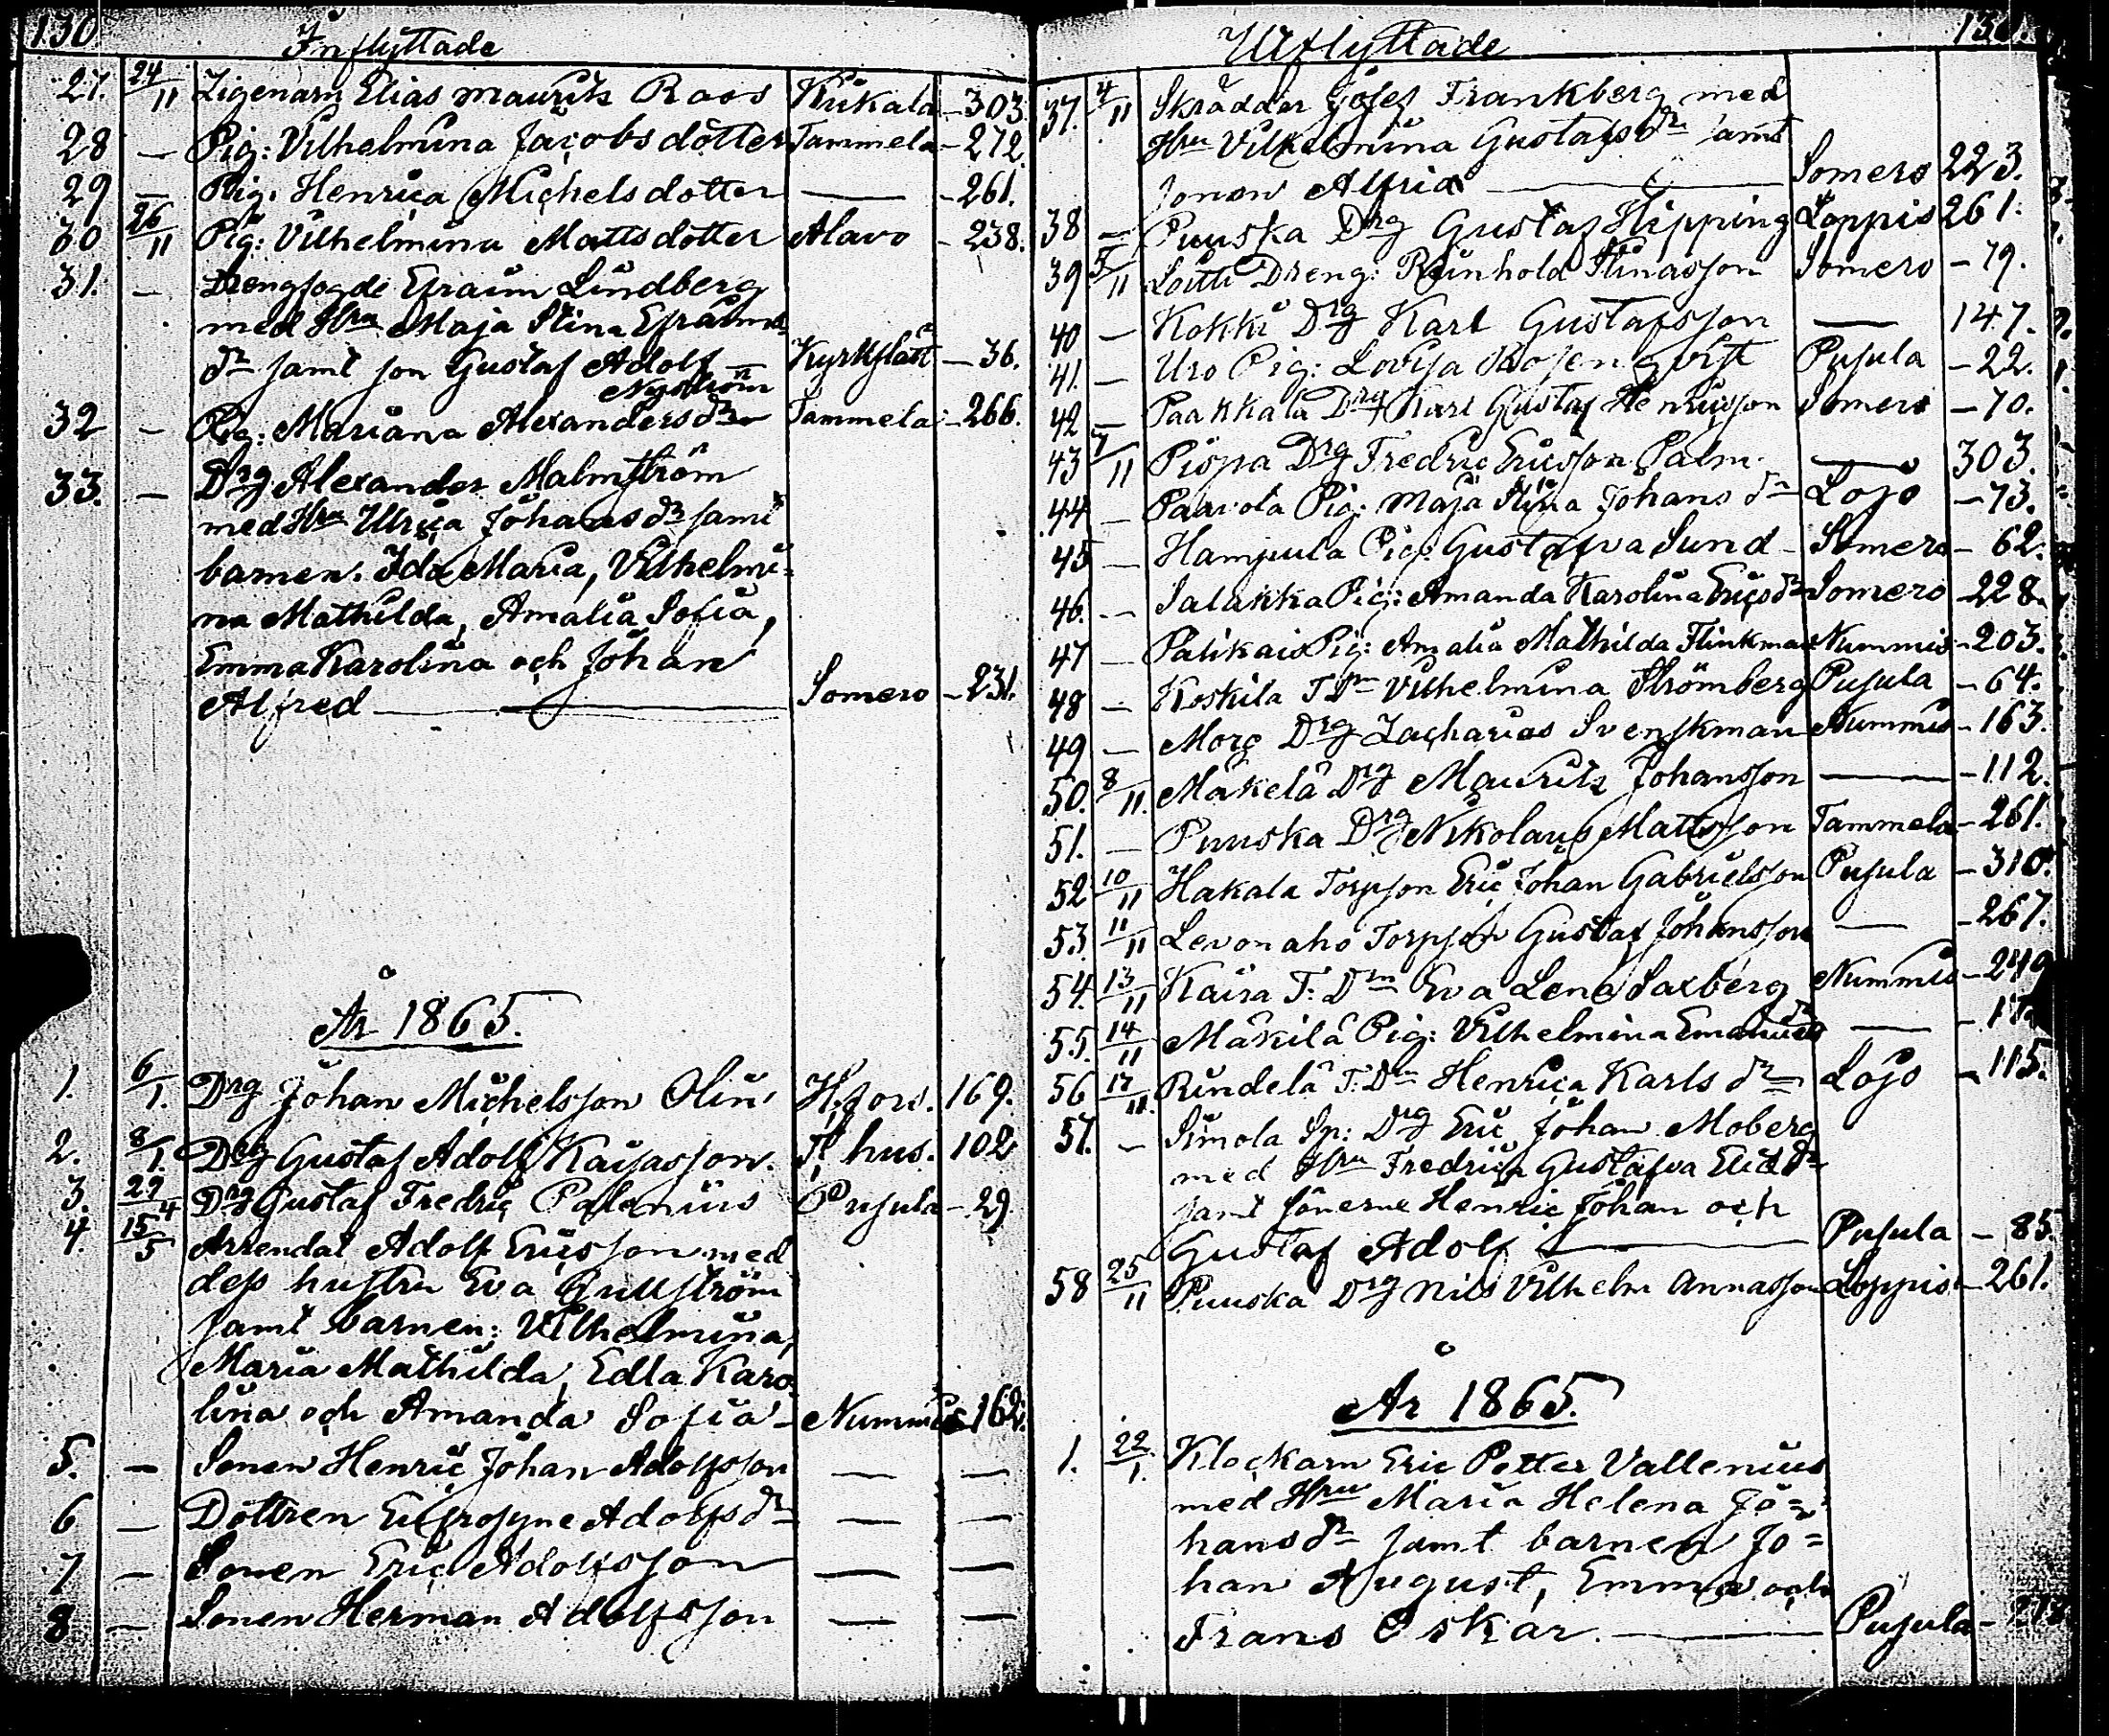 130
Inflyttade
27. 24/11 Zigenarn Elias Maurits Roos Kiikala - 303.
28 — Pig: Vilhelmina Jacobsdotter Tammela - 272.
29 — Pig: Henrica Michelsdotter — - 261.
30 26/11 Pig: Vilhelmina Mattsdotter Alavo - 238.
31. — Drengfogde Efraim Lindberg
med Hru Maja Stina Efraims
dr samt son Gustaf Adolf Kyrkslätt - 36.
Nyström
32 — Pig: Mariana Alexandersdr Tammela - 266.
33. — Drg Alexander Malmström
med Hru Ulrica Johansdr samt
barnen. Ida Maria, Vilhelmi-
na Mathilda, Amalia Sofia,
Emma Karolina och Johan
Alfred — Somero - 231.
År 1865.
1. 6/1. Drg Johan Michelsson Olin H.fors. 169.
2. 8/1. Drg Gustaf Adolf Kaisasson. hus. 102
3. 29/4 Drg Gustaf Fredric Palenius Pusula - 29.
4. 15/5 Arrendat Adolf Ericsson med
dess hustru Eva Gullström
samt barnen: Vilhelmina,
Maria Mathilda, Edla Karo-
lina och Amanda Sofia - Nummis 162.
5. — Sonen Henric Johan Adolfsson — —
6 — Dottren Eufrosyne Adolfsdr — —
7 — Sonen Eric Adolfsson — —
8 — Sonen Herman Adolfsson — —
131.
Utflyttade
37. 4/11 Skräddar Josef Frankberg med
Hru Vilhelmina Gustafsdr samt
sonen Alfrid — Somero 223.
38 — Puuska Drg Gustaf Hipping Loppis 261.
39 5/11 Loitti Dreng: Reinhold Stinasson Somero - 79.
40 — Kokki Drg Karl Gustafsson — 147.
41. — Uro Pig: Lovisa Rosenqvist Pusula - 22.
42 — Paakkala Drg Karl Gustaf Henricsson Somero - 70.
43 7/11 Piispa Drg Fredric Ericsson Palm. — 303.
44 — Paavola Pig: Maja Stina Johansdr Lojo - 73.
45 — Hamjula Pig: Gustafva Sund - Somero - 62.
46. — Salakka Pig: Amanda Karolina Ericsdr Somero - 228.
47 — Palikais Pig: Amalia Mathilda Flinkman Nummis - 203.
48 — Koskila T.Drn Vilhelmina Strömberg Pusula - 64.
49 — Morg Drg Zacharias Svenskman Nummis - 163.
50. 8/11. Mäkelä Drg Maurits Johansson — - 112.
51. — Puuska Drg Nikolaus Mattsson Tammela - 261.
52 10/11 Hakala Torpson Eric Johan Gabrielsson Pusula - 310.
53. 11/11 Levonaho Torpson Gustaf Johansson — - 267.
54. 13/11 Kaira T: Drn Eva Lena Saxberg Nummis - 249
55. 14/11 Mäkilä Pig: Vilhelmina Emanuelsdr —
56 17/11. Rindelä T: Drn Henrica Karlsdr Lojo - 115.
57. — Simola Sp: Drg Eric Johan Moberg
med Hru Fredrica Gustafva Ericsdr
samt sönerne Henric Johan och
Gustaf Adolf — Pusula - 85.
58 25/11 Puuska Drg Nils Vilhelm Annasson Loppis - 261.
År 1865.
1. 22/1. Klockarn Eric Petter Vallenius
med Hru Maria Helena Jo=
hansdr samt barnen Jo=
han August, Emma och
Frans Oskar. — Pusula -